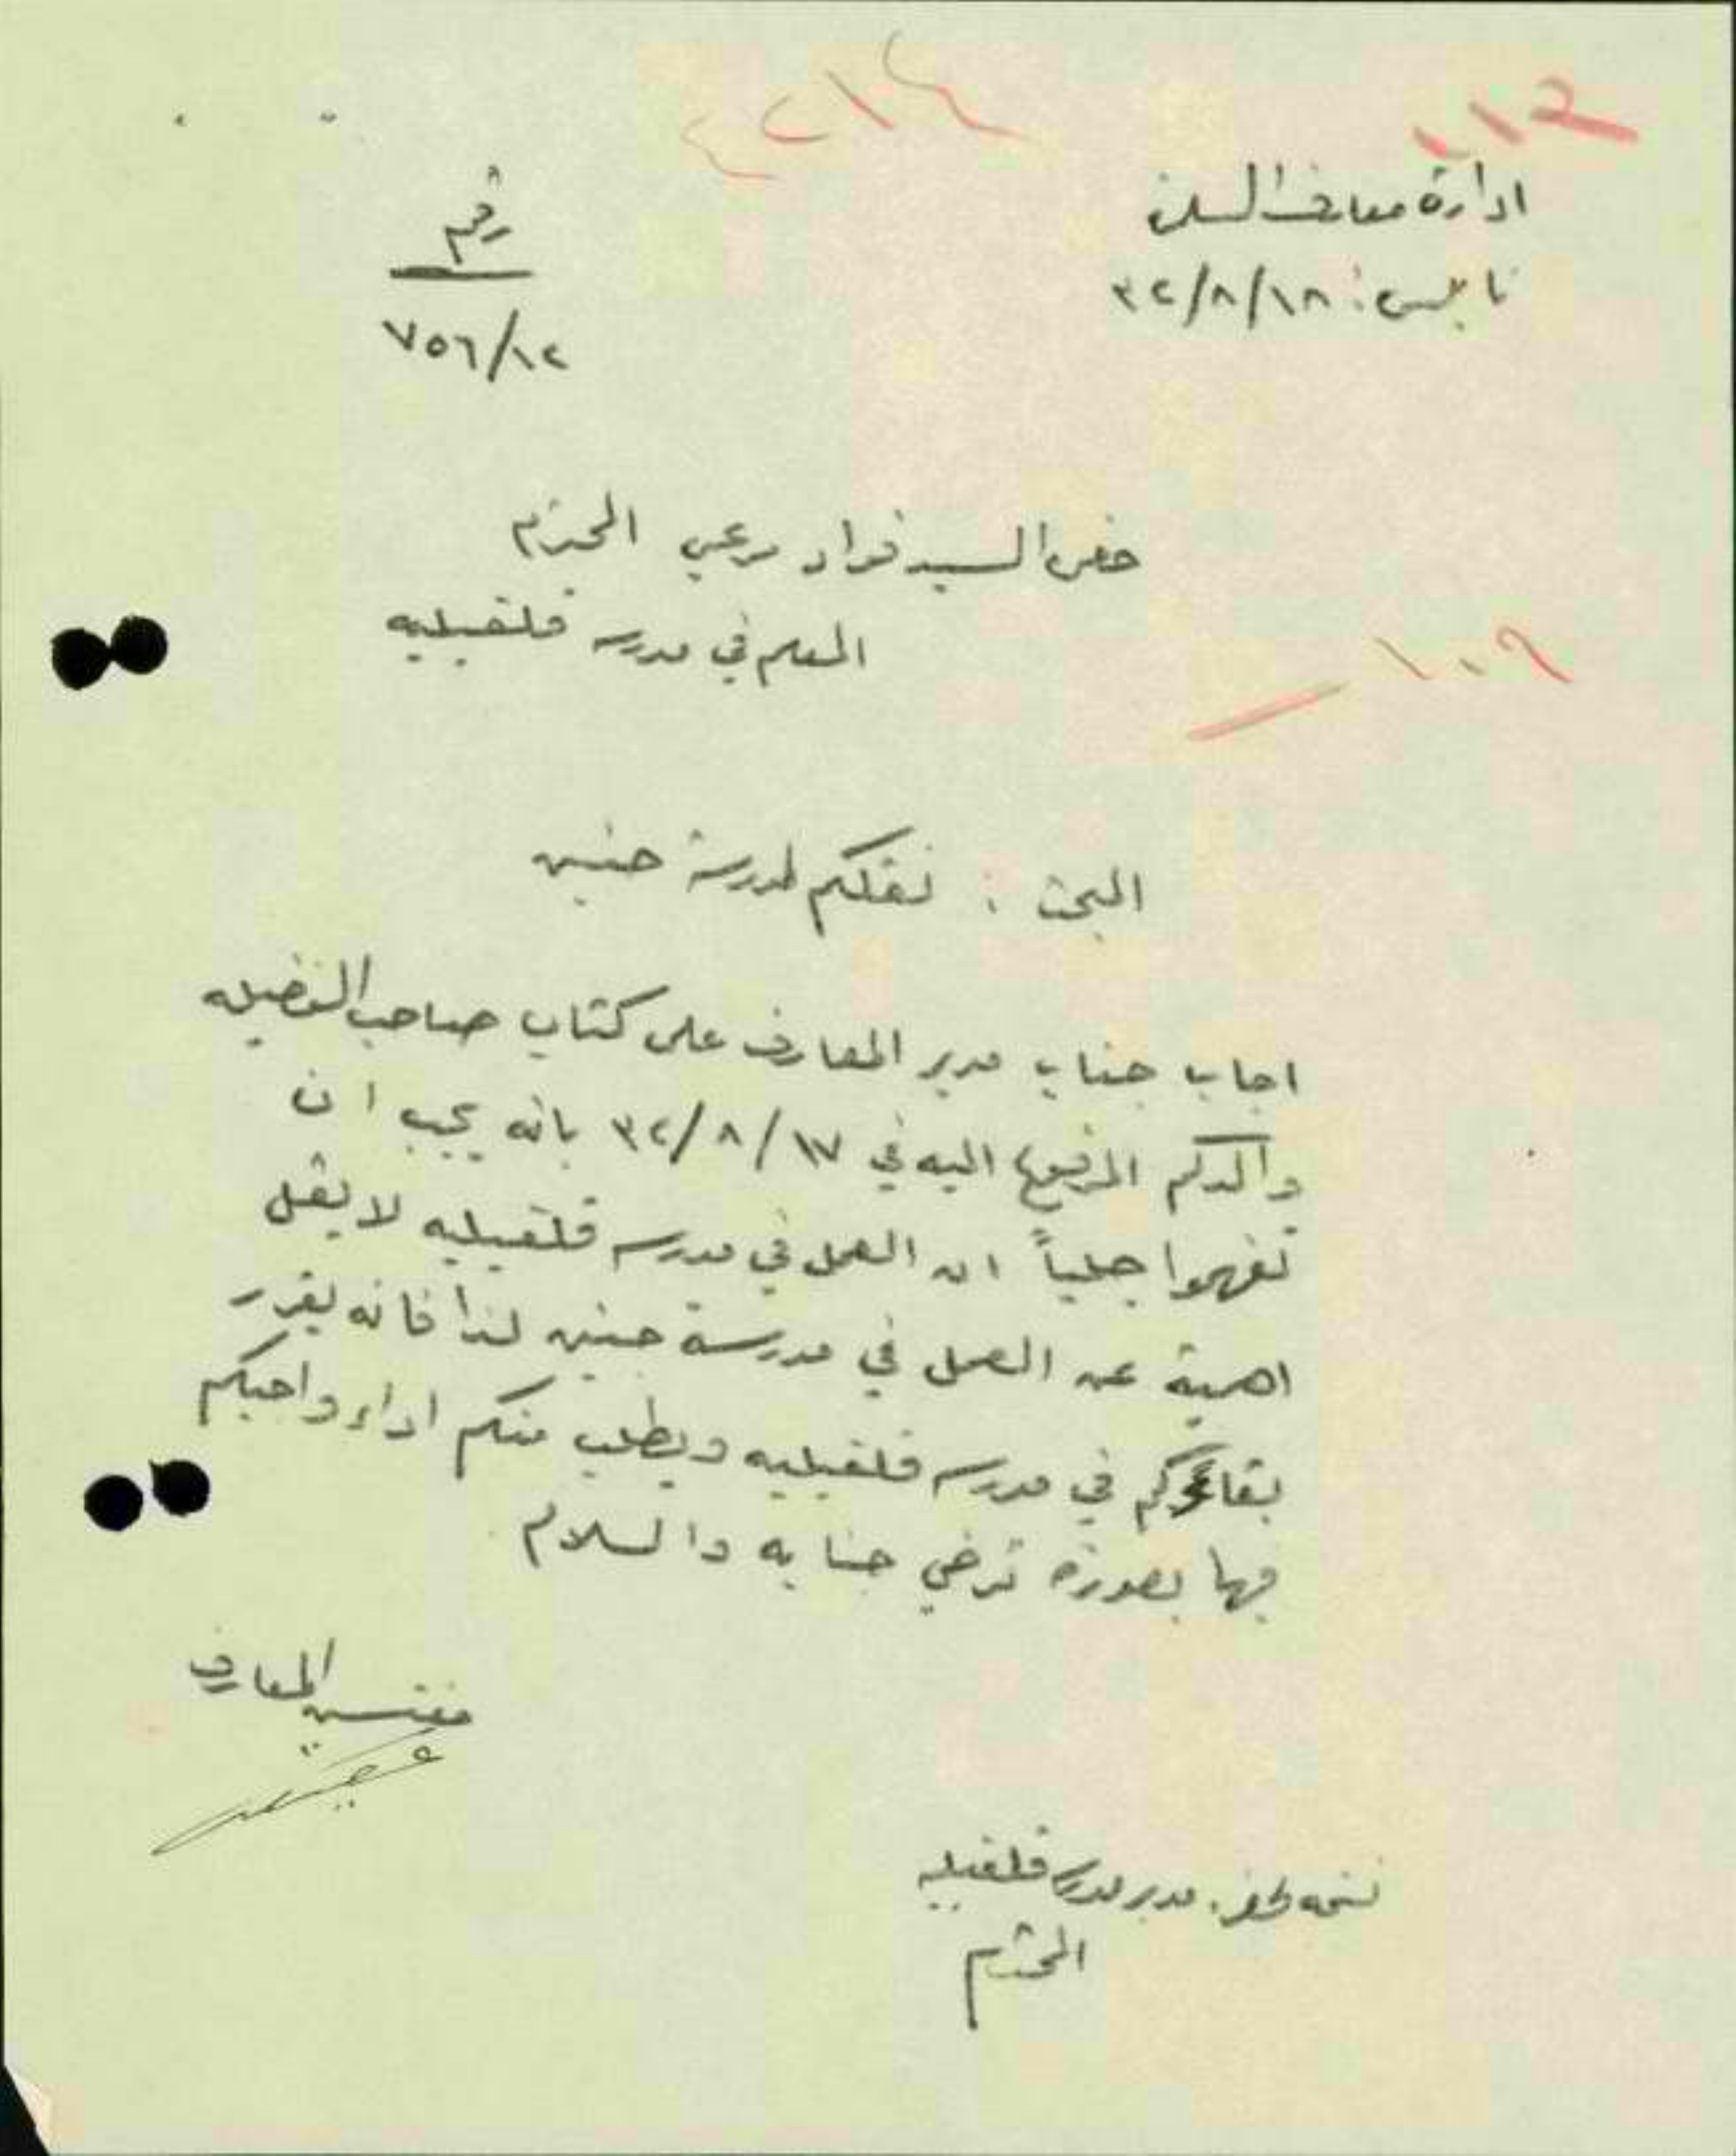 ادارة معارف السامرة
نابلس: ٣٢/٨/١٨
رقم
٧٥٦/١٢
حضرة السيد فؤاد مرعي المحترم
المعلم في مدرسه قلقيليه
١٠٩
البحث : نقلكم لمدرسة جنين
اجاب جناب مدير المعارف على كتاب صاحب الفضيله
والدكم المرفوع اليه في ٣٢/٨/١٧ بانه يجب ان
تفهموا جلياً ان العمل في مدرسه قلقيليه لا يقل
اهمية عن العمل في مدرسة جنين لذا فانه يقرر
بقاءكم في مدرسه قلقيليه ويطلب منكم اداء واجبكم
فيها بصورة ترضي جنابه والسلام
مفتش المعارف
نسخه لحضرة مدير مدرسه قلقيليه
المحترم